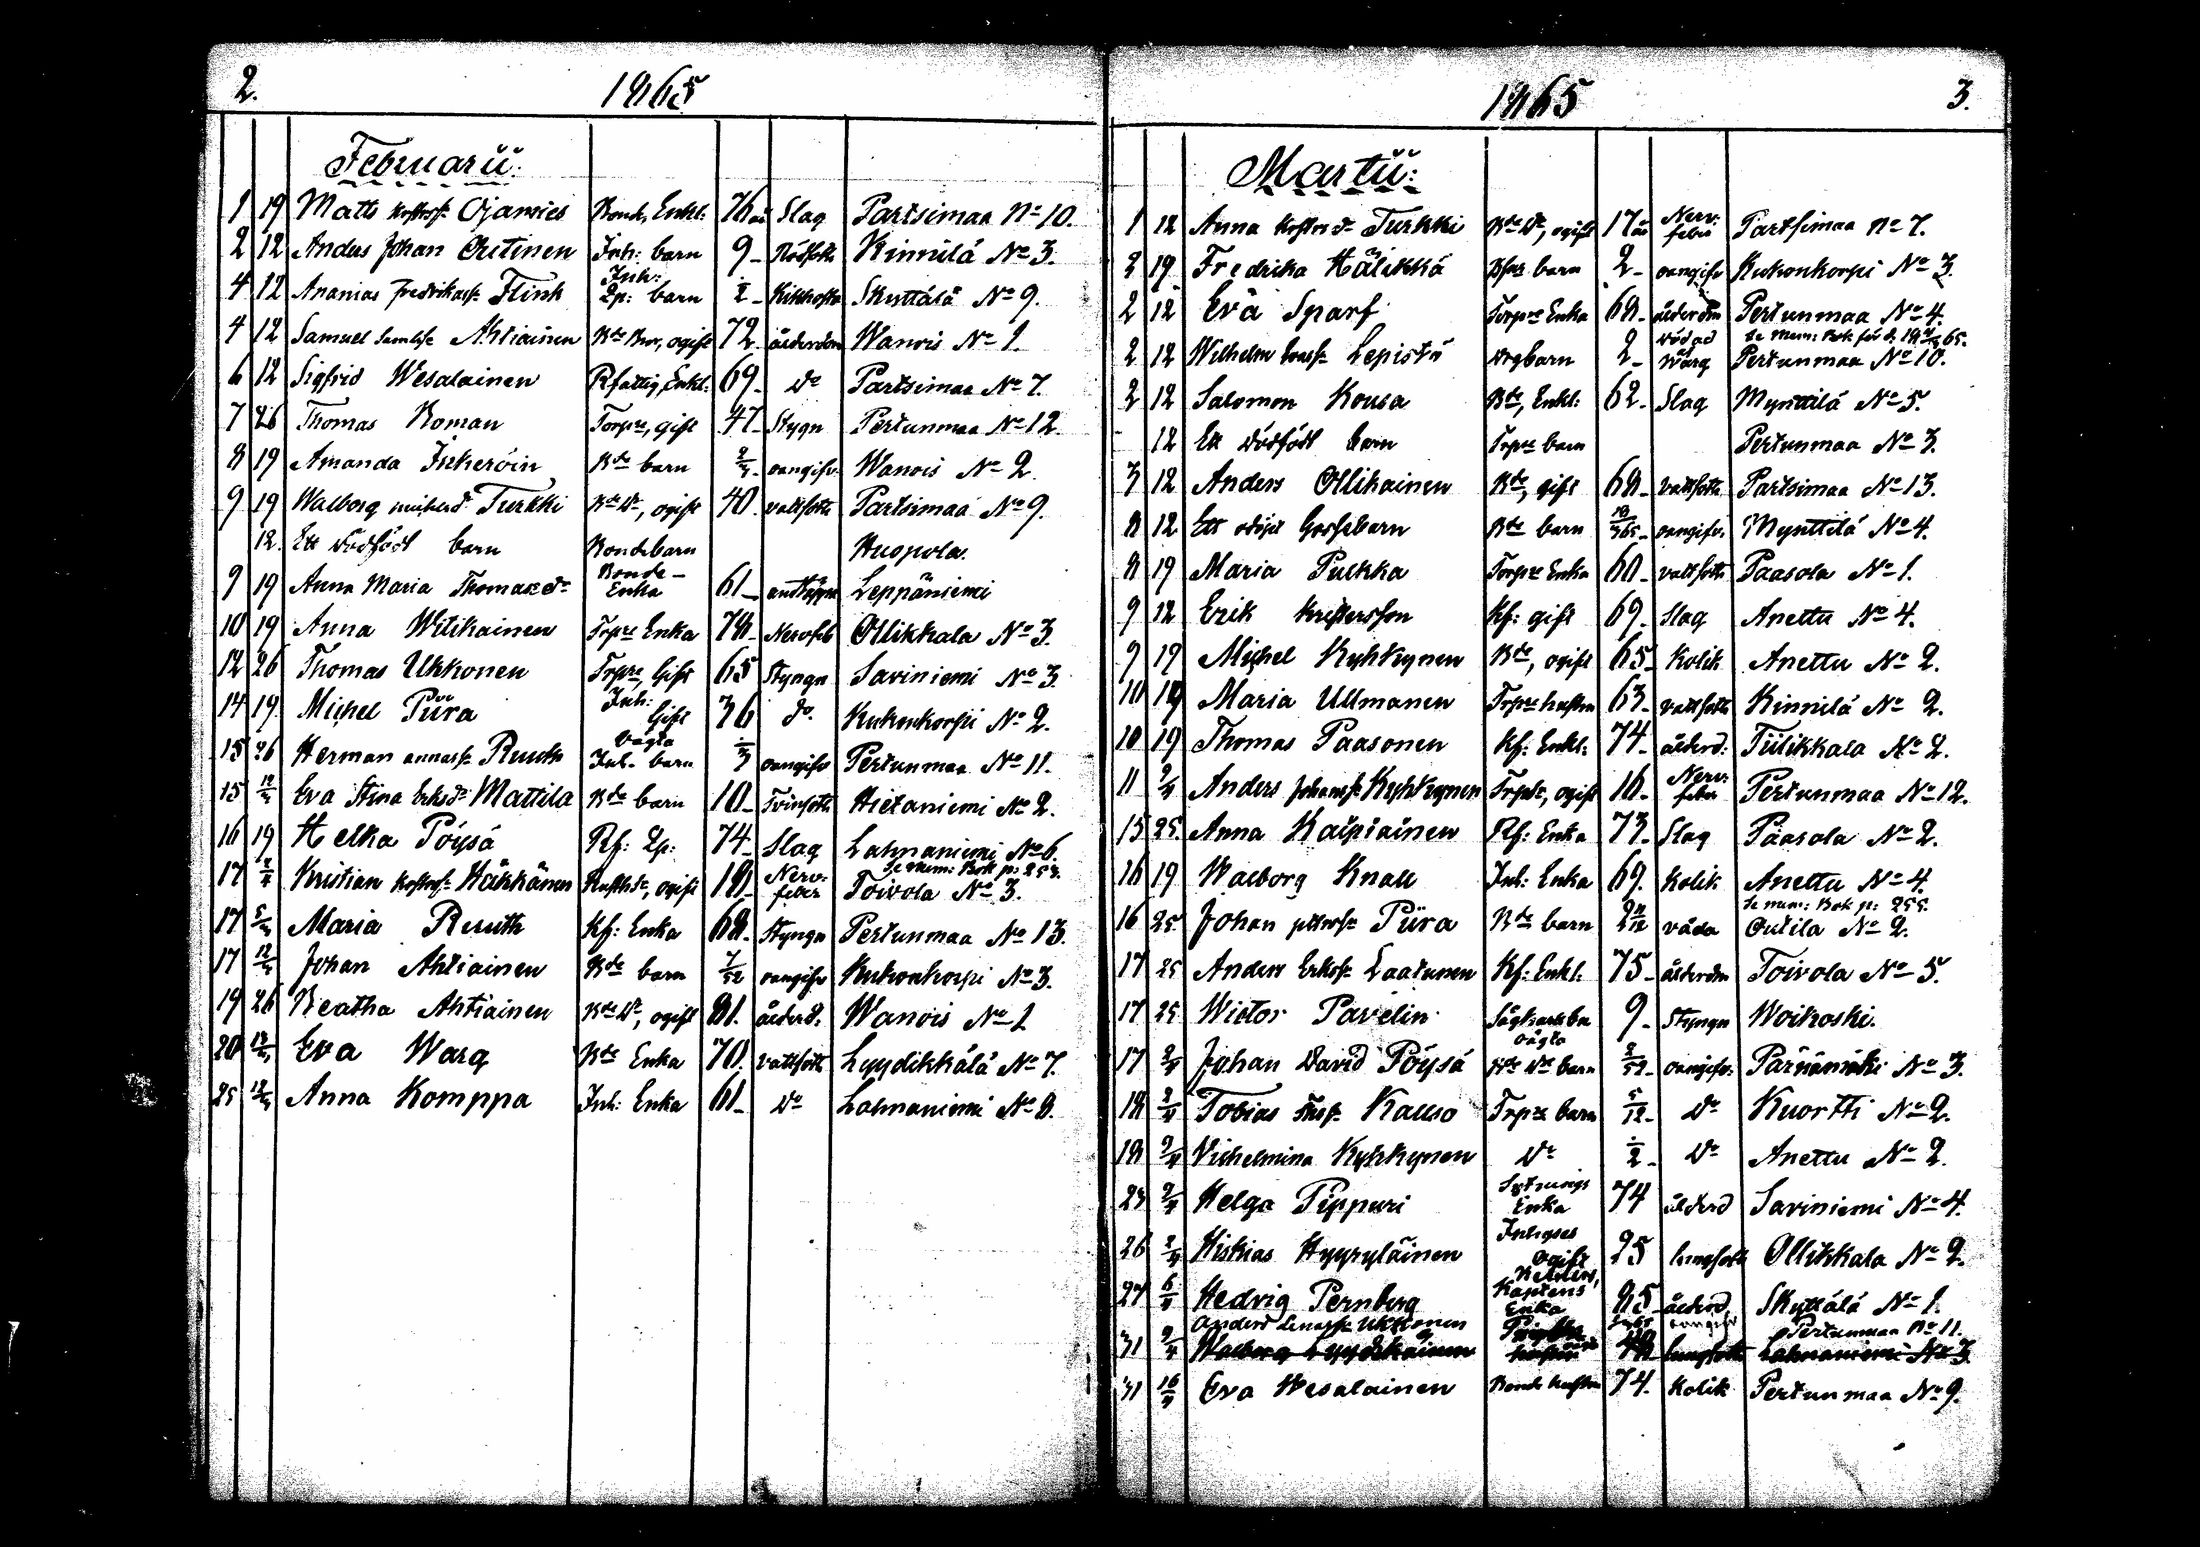 2. 1865
Februarii:
1 19 Matts Ojamies Bonde, Enkl: 76 år Slag Partsimaa No 10.
2 12 Anders Johan Outinen Inh: barn 9 - Rödsot Kinnilä No 3.
4 12 Ananias Fredrikss. Flink Inh: barn Kikhosta Skyttälä No 9.
4 12 Samuel Ahtiainen Bde Bror, ogift 72 - ålderdom Wanois No 1.
6 12 Sigfrid Wesalainen Rfattig, Enkl: 69 - do Partsimaa No 7.
7 26 Thomas Roman Torpre, gift 47 - Stygn Pertunmaa No 12.
8 19 Amanda Inkeröin Bde barn oangifv. Wanois No 2.
9 19 Walborg Turkki Bde Dr, ogift 40. vattsot Partsimaa No 9.
12. Ett dödfödt barn Bondebarn Kuopola.
9 19 Anna Maria Thomasdr Bonde-Enka 61 - andtäppa Leppäniemi
10 19 Anna Witikainen Trpre Enka 78 - Nervfeb Ollikkala No 3.
12 26 Thomas Ukkonen Trpre, Gift 65 Styngn Saviniemi No 3.
14 19 Michel Piira Inh: Gift 36 do Kuhonkorpi No 2.
15 26 Herman annass. Ruuth Inh. barn oangifv Pertunmaa No 11.
15 12/3 Eva Stina Eriksdr Mattila Bde barn 10 - Tvinsot Hietaniemi No 2.
16 19 Helka Pöysä Rf: 74 - Slag Lahnaniemi No 6.
Se Mem: Bok p: 253.
17 2/4 Kristian Häkkänen ogift 18 - Nervfeber Toivola No 3.
17 5/3 Maria Ruuth Kf: Enka 68. Styngn Pertunmaa No 13.
17 12/3 Johan Ahtiainen Bde barn 7/52 oangifv Kuhonkorpi No 3.
19 26 Beatha Ahtiainen Bde Dr, ogift 81. ålderd: Wanois No 1
20 12/3 Eva Warg Bde Enka 70. vattsot Lyydikkälä No 7.
25 12/3 Anna Komppa Inh: Enka 61 - do Lahnaniemi No 8.
1865 3.
Martii:
1 12 Anna Turkki Bde Dr, ogift 17 år Nervfeber Partsimaa No 7.
2 19 Fredrika Hälikkä barn 2 - oangifv Kuhonkorpi No 3.
2 12 Eva Sparf Torpre Enka 68 - ålderdom Pertunmaa No 4.
Se Mem: Bok för d: 65.
2 12 Wilhelm Lepistö barn 2 - Pertunmaa No 10.
2 12 Salomon Kousa Bde, Enkl: 62 - Slag Mynttilä No 5.
12 Ett dödfödt barn Trpre barn Pertunmaa No 3.
3 12 Anders Ollikainen Bde, gift 68 - vattsot Partsimaa No 13.
8 12 Ett odöpt Gossebarn Bde barn oangifv. Mynttilä No 4.
8 19 Maria Pulkka Torpre Enka 60 - vattsot Paasola No 1.
9 12 Erik Kristersson Kf: gift 69. Slag Anettu No 4.
9 19 Michel Kyhkynen Bde, ogift 65 - Kolik Anettu No 2.
10 19 Maria Ullmanen Trpre hustru 63. vattsot Kinnilä No 2.
10 19 Thomas Paasonen Kf: Enkl: 74 - ålderd: Tiilikkala No 2.
11 2/4 Anders Johanss. Kyhkynen ogift 16. Nervfeber Pertunmaa No 12.
15 25. Anna Kaipiainen Rf: Enka 73. Slag Paasola No 2.
16 19 Walborg Knall Inh: Enka 69. Kolik Anettu No 4.
Se mem: Bok p: 255.
16 25. Johan Piira Bde barn våda Outila No 2.
17 25 Anders Erikss. Laatunen Kf: Enkl: 75 - ålderdom Toivola No 5.
17 25. Wictor Pavelin 9 - Styngn Woikoski.
17 2/4 Johan David Pöysä Bde Dr barn oangifv. Pärnämäki No 3.
18 2/4 Tobias Kauso Trpre barn 5/12 - do Kuortti No 2.
18 2/4 Vilhelmina Kyhkynen do do Anettu No 2.
23 2/4 Helga Pippuri Enka 74 ålderd Saviniemi No 4.
26 2/4 Hiskias Hyyryläinen Inhyses Ogift 25 lungsot Ollikkala No 2.
27 6/4 Hedvig Pernberg Kaptens Enka 85 - ålderd. Skyttälä No 1.
Anders Ukkonen oangifv Pertunmaa No 11.
31 2/4 Walborg Lyydikäinen lungsot Lahnaniemi No 3
31 16/4 Eva Wesalainen Bonde hustru 74. Kolik Pertunmaa No 9.